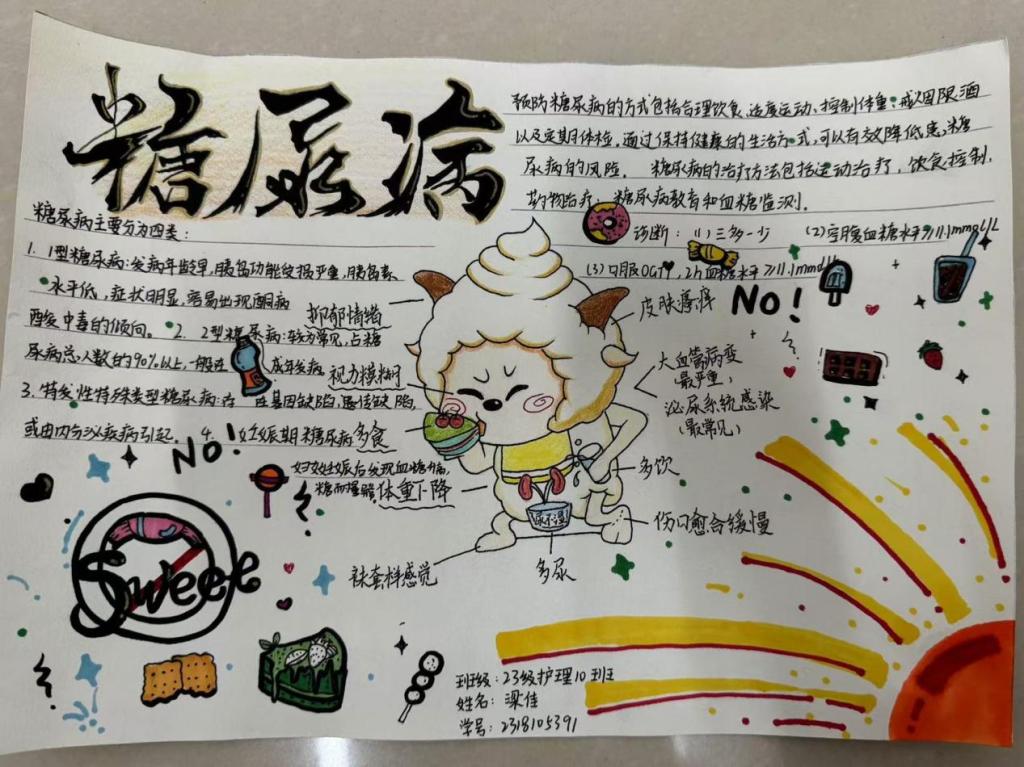 糖尿病
预防糖尿病的方式包括合理饮食、适度运动、控制体重、戒烟限酒
以及定期体检。通过保持健康的生活方式,可以有效降低患糖
尿病的风险。 糖尿病的治疗方法包括运动治疗,饮食控制,
药物治疗,糖尿病教育和血糖监测。
诊断: (1)三多一少 (2)空腹血糖水平≥11.1mmol/L
(3)口服OGTT,2h血糖水平≥11.1mmol/L
糖尿病主要分为四类:
1. 1型糖尿病:发病年龄早,胰岛功能受损严重,胰岛素
水平低,症状明显,容易出现酮病
酸中毒的倾向。 2. 2型糖尿病:较为常见,占糖
尿病总人数的90%以上,一般在成年发病
3. 特发性特殊类型糖尿病:存在基因缺陷,
或由内分泌疾病引起。 4. 妊娠期糖尿病
妇女妊娠后发现血糖升高,
抑郁情绪
视力模糊
多食
体重下降
袜套样感觉
多尿
尿不湿
皮肤瘙痒
大血管病变
(最严重)
泌尿系统感染
(最常见)
多饮
伤口愈合缓慢
NO!
NO!
Sweee
班级:23级护理10班
姓名:梁佳
学号:2318105391